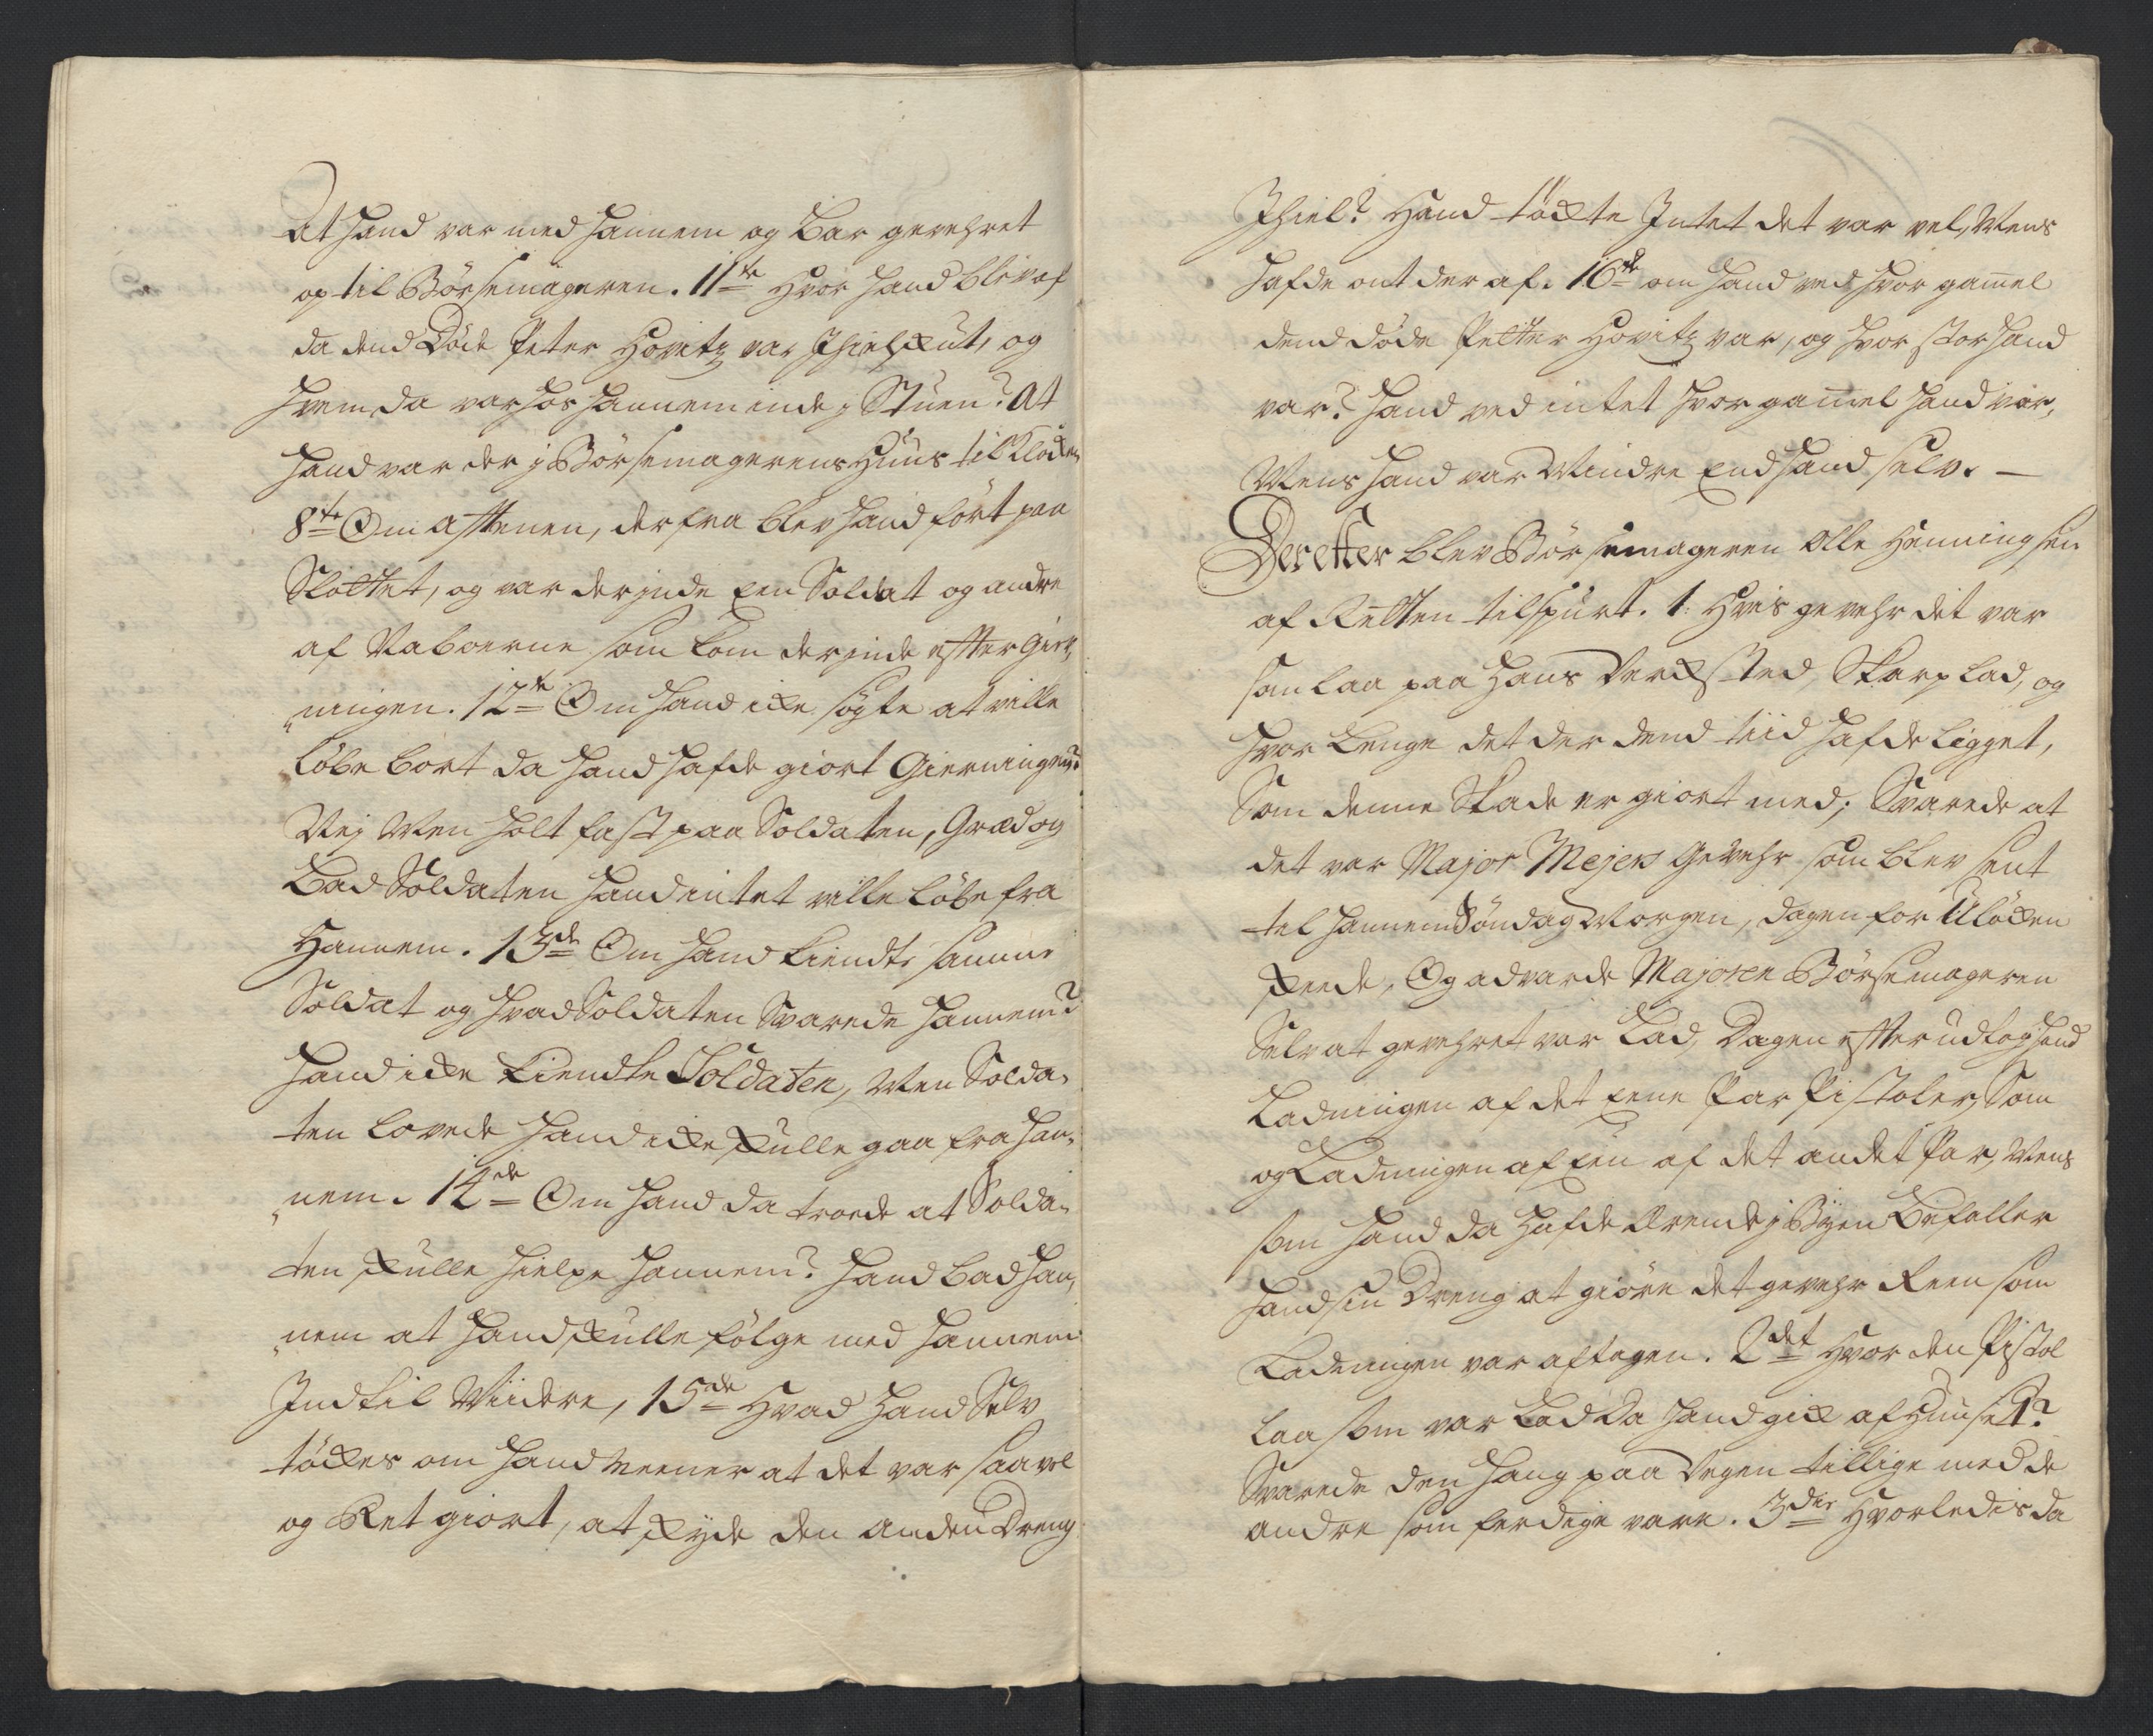 At hand var med hannem og bar gevehret
op til Børsemageren. 11te Hvor hand blev af
da dend Døde Peter Hovitz var Jhielskut, og
hvem da var hos hannem inde j Stuen? At
hand var der j Børsemagerens Huus til Klocken
8te Om Afftenen, derfra blev hand ført paa
Slottet, og var der jnde Een Soldat og andre
af Naboerne som kom der jnde effter gier,,
,,ningen. 12te Om hand icke søgte at ville
løbe bort da hand hafde giort Gierningen?
Nej Men holt fast paa Soldaten, Græd og
Bad Soldaten hand intet ville løbe fra
Hannem. 13de Om hand kiendte samme
Soldat og hvad Soldaten Svarede hannem?
hand icke kiendte Soldaten, Men Solda,,
ten lovede hand icke skulle gaa fra han,,
,,nem. 14de Om hand da troede at Solda,,
ten skulle hielpe hannem? hand bad han,,
,,nem at hand skulle følge med hannem
Indtil Viidere, 15de Hvad hand Selv
tøckes om hand meener at det var saa vel
og Ret giort, at skyde den anden Dreng
Jhiel? Hand tøckte Intet det var vel, Mens
hafde ont der af. 16de om hand ved hvor gammel
dend døde Petter Hovitz var, og hvor stor hand
var? hand ved intet hvor gammel hand var,
Mens hand var Mindre End hand selv. —
Dereffter blev Børsemageren Olle Henningsen
af Retten tilspurt. 1: Hvis gevehr dit var
som laa paa Hans Verchsted, Skarp lad, og
hvor Lenge det der dend tiid hafde Ligget,
Som denne Skade er giort med; Svarede at
det var Major Mejers Gevehr som blev sent
til hannem Søndag Morgen, dagen for Uløcken
skeede, Og advarde Majoren Børsemageren
Selv at gevehret var Lad, Dagen effter udtog hand
Ladningen af det Eene Par Pistoler, Som
og Ladningen af Een af det andet Par, Mens
som hand da hafde Ærende j Byen Befaller
hand sin Dreng at giøre det gevehr Reen som
Ladningen var aftagen. 2det Hvor den Pistol
laa som var Lad da hand gick af Huuset?
Svarede den hang paa Vegen tillige med de
andre som ferdige vare. 3die Hvorledis da